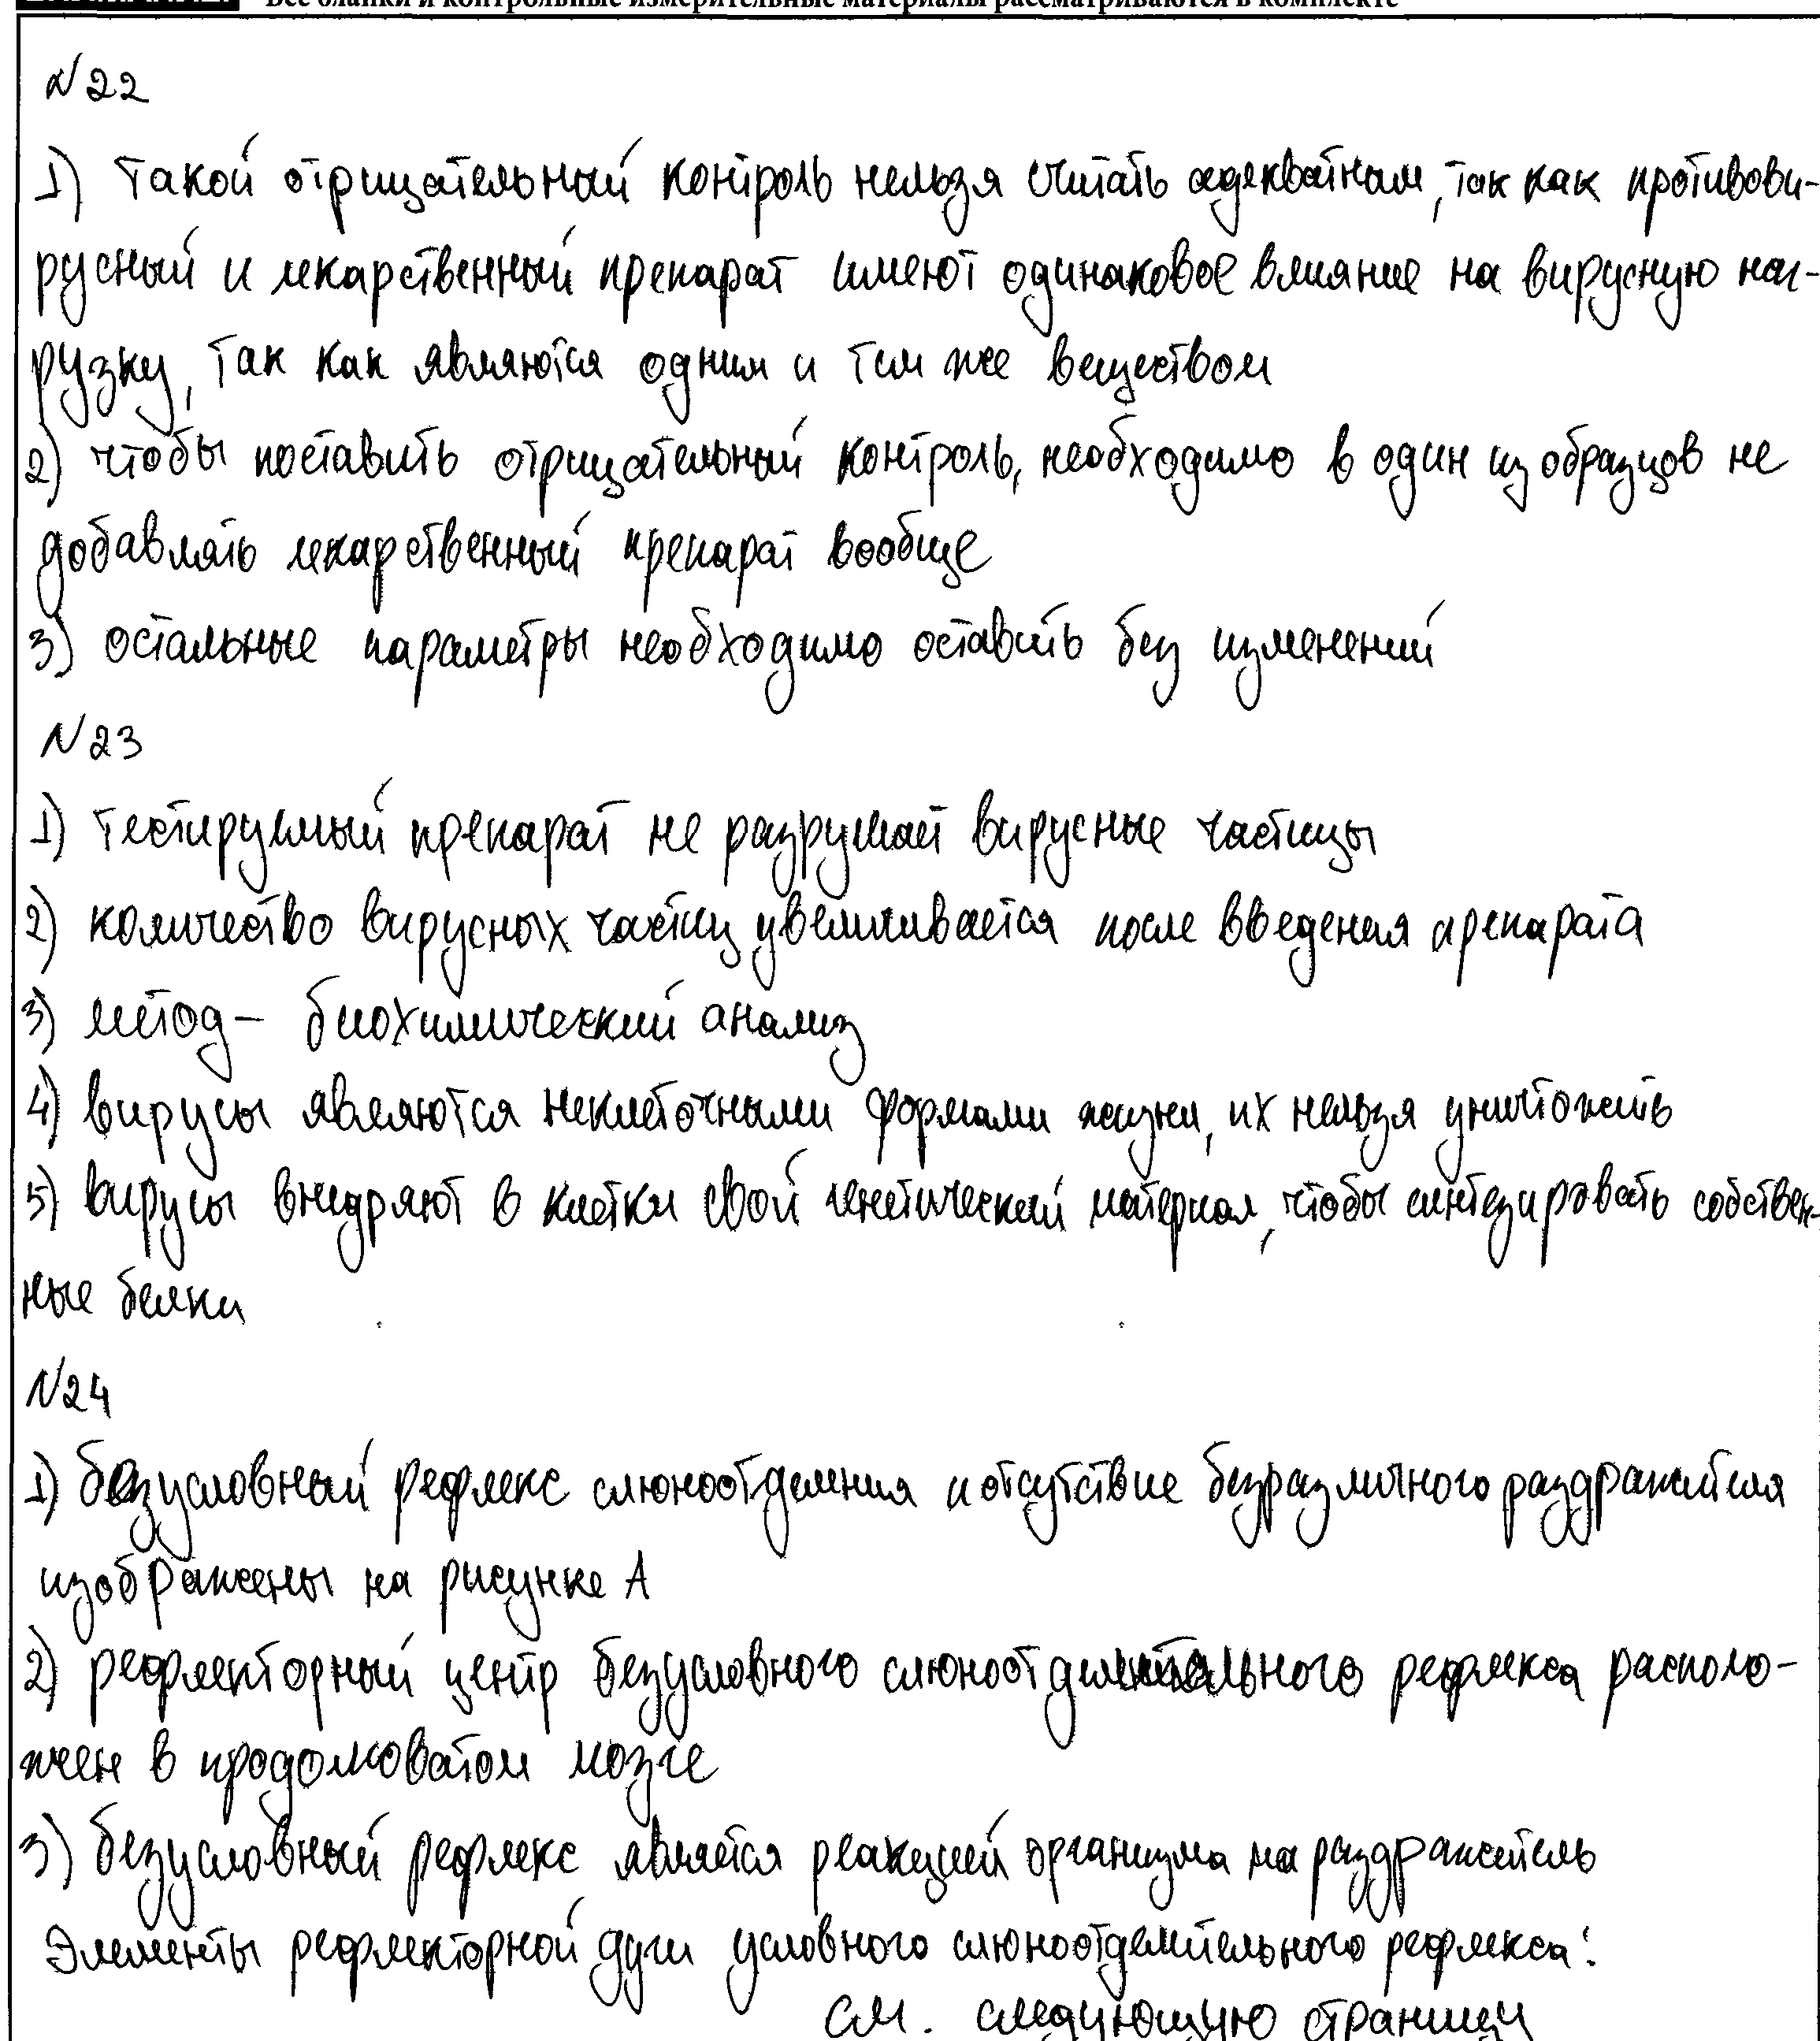 Все бланки и контрольные измерительные материалы рассматриваются в комплекте
№22
1) Такой отрицательный контроль нельзя считать адекватным, так как противови-
русный и лекарственный препарат имеют одинаковое влияние на вирусную наг-
рузку, так как являются одним и тем же веществом
2) чтобы поставить отрицательный контроль, необходимо в один из образцов не
добавлять лекарственный препарат вообще
3) остальные параметры необходимо оставить без изменений
№23
1) тестируемый препарат не разрушает вирусные частицы
2) количество вирусных частиц увеличивается после введения препарата
3) метод – биохимический анализ
4) вирусы являются неклеточными формами жизни, их нельзя уничтожить
5) вирусы внедряют в клетки свой генетический материал, чтобы синтезировать собствен-
ные белки
№24
1) безусловный рефлекс слюноотделения и отсутствие безразличного раздражителя
изображены на рисунке А
2) рефлекторный центр безусловного слюноотделительного рефлекса располо-
жен в продолговатом мозге
3) безусловный рефлекс является реакцией организма на раздражитель
Элементы рефлекторной дуги условного слюноотделительного рефлекса:
См. следующую страницу